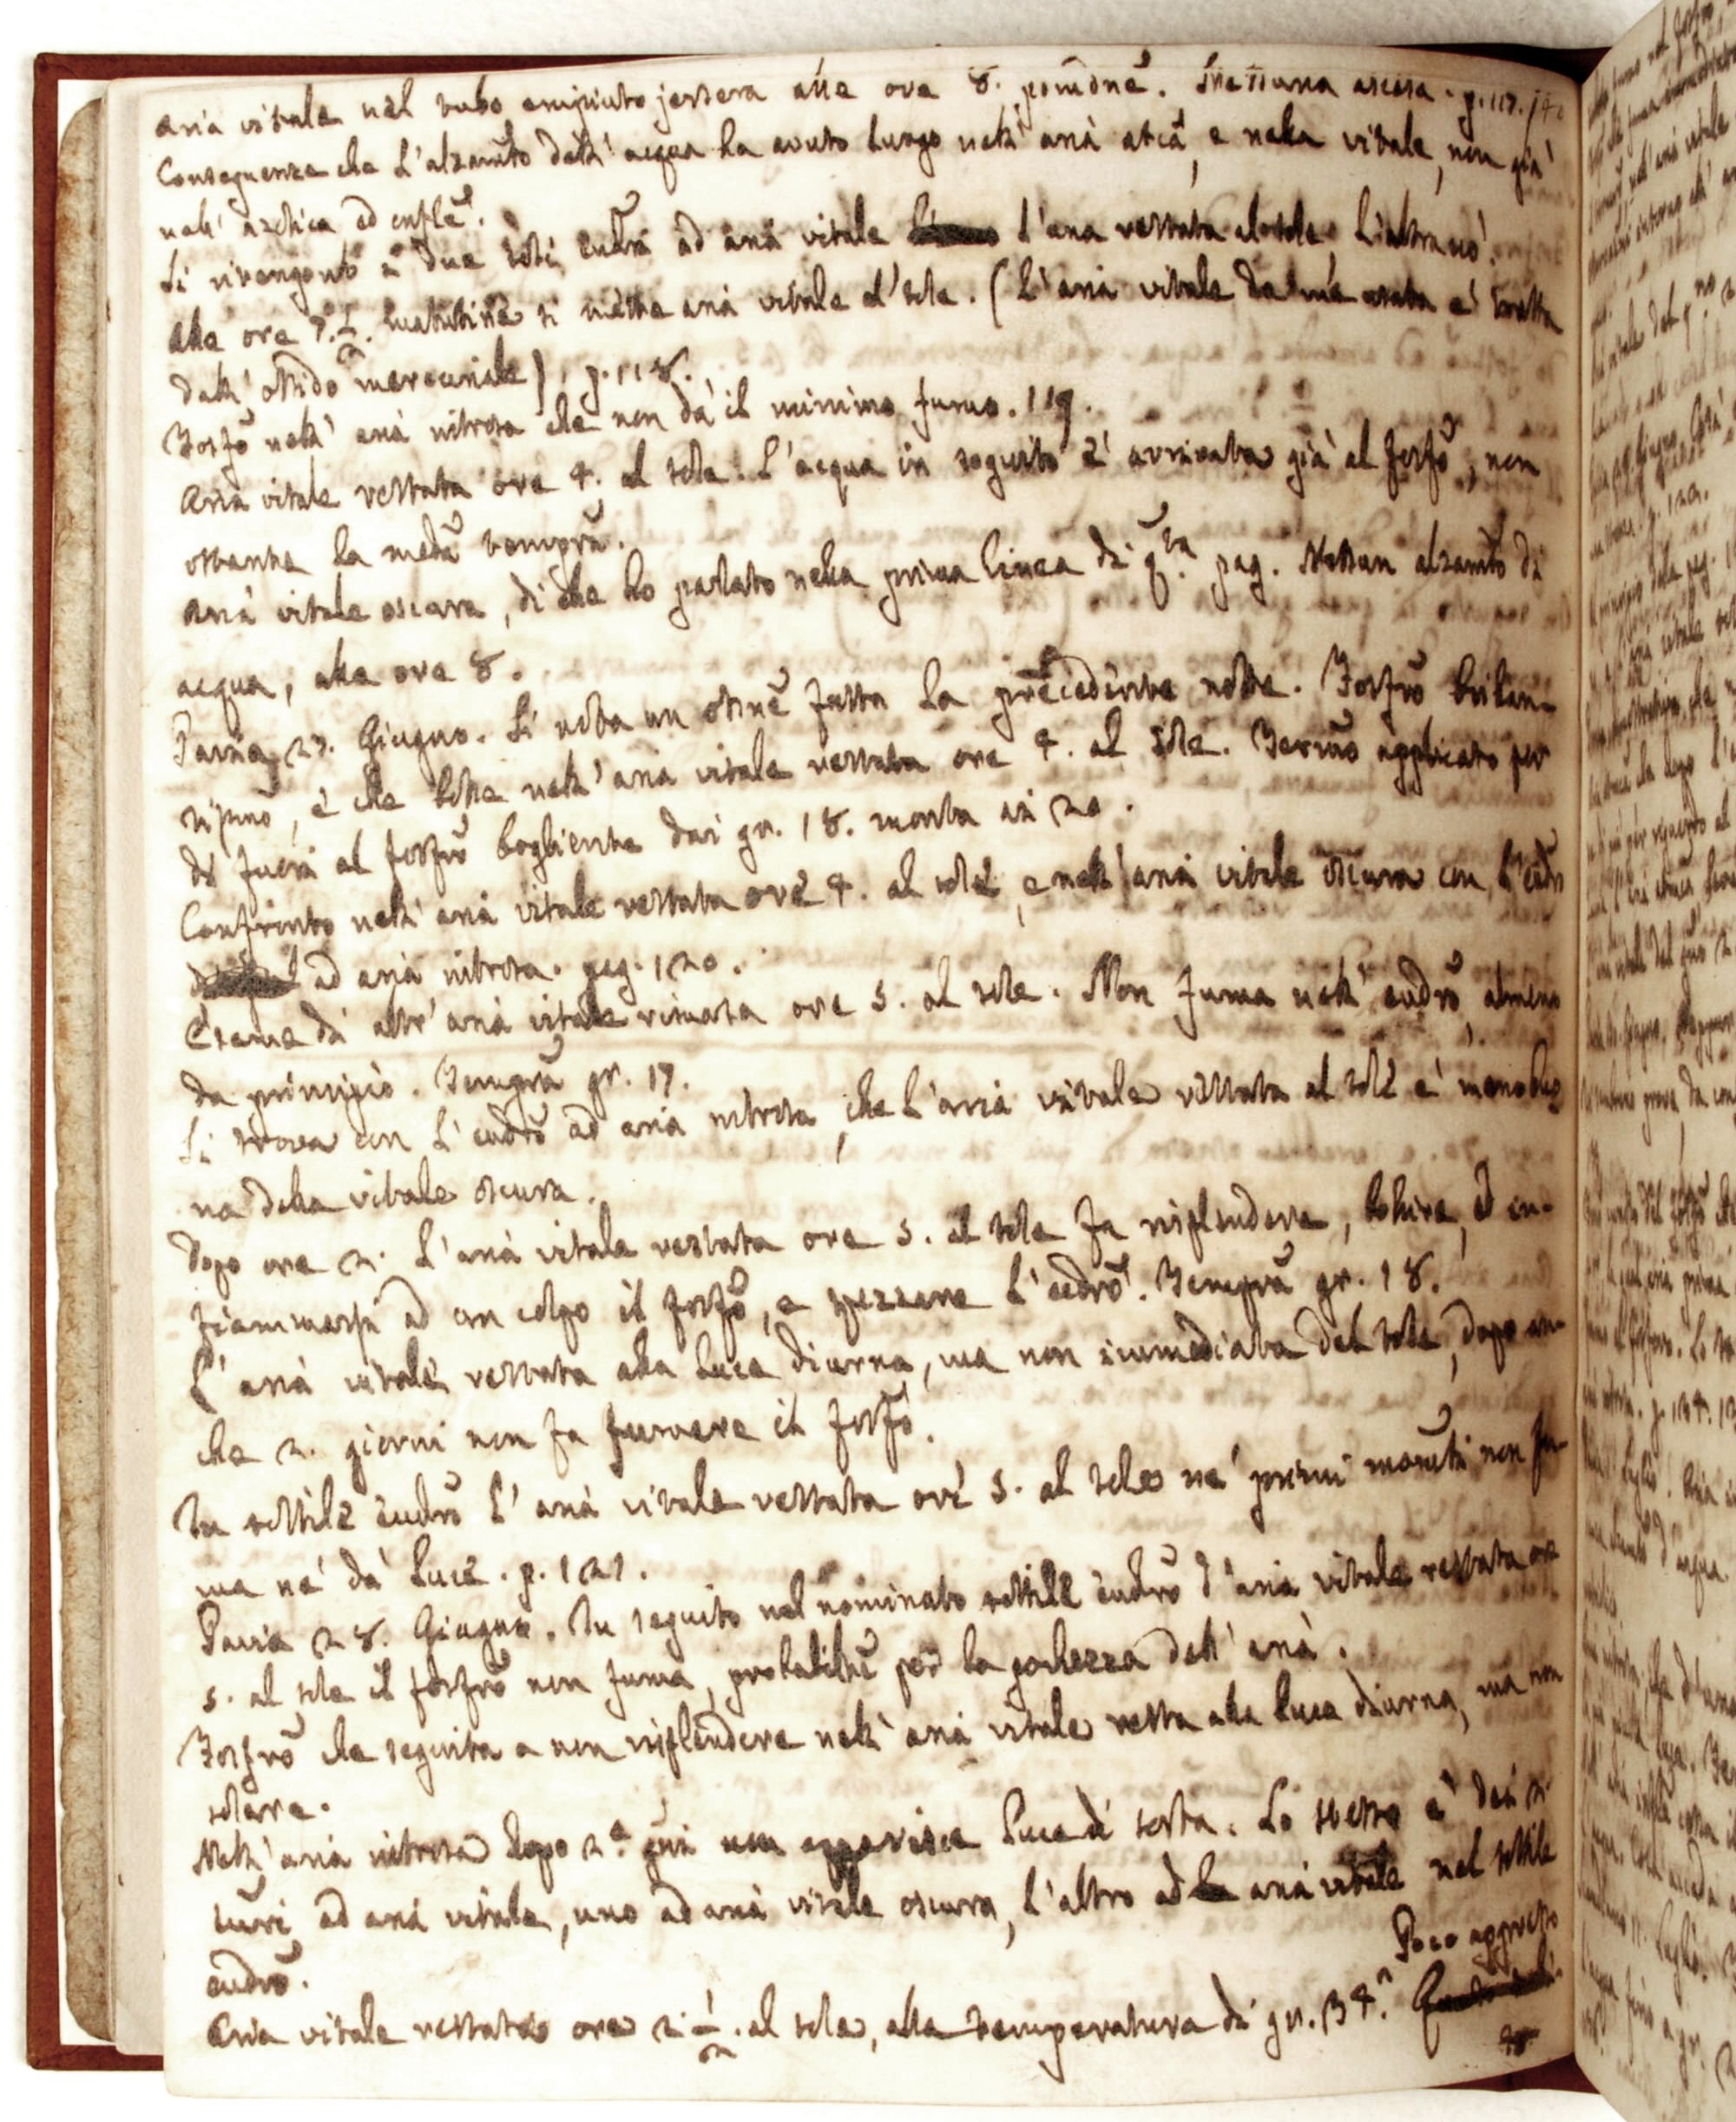 Aria vitale nel tubo empiuto jersera alle ore 8. pomdne. Nessuna ascesa. p. 117.
Conseguenza che l'alzamto dell'acqua ha avuto luogo nell'aria atca, e nella vitale, non già
nell' azotica ed infle.
Si rivengono a due eudri ad aria vitale l'una restata al sole, l'altra no.
Alle ore 7. 1/2. mattutine si mette aria vitale al sole. (L'aria vitale da me usata è tratta
dall' ossido mercuriale). p. 118.
Fosfo nell' aria nitrosa che non dà il minimo fumo. 119.
Aria vitale restata ore 4. al sole. L'acqua in seguito è arrivata già al fosfo, non
ostante la meda tempra.
Aria vitale oscura, di che ho parlato nella prima linea di qta pag. Nessun alzamto di
acqua, alle ore 8.
Pavia 27. Giugno. Si nota un ossne fatta la precedente notte. Fosfro
, è che bolle nell'aria vitale restata ore 4. al sole. Termo applicato per
di fuori al fosfro bogliente dai gr. 18. monta ai 20.
Confronto nell'aria vitale restata ore 4. al sole, e nell'aria vitale oscura con l'eudro
ad aria nitrosa. pag. 120.
Esame di altr'aria vitale rimasta ore 5. al sole. Non fuma nell' eudro, almeno
da principio. Tempra gr. 17.
Si trova con l'eudro ad aria nitrosa, che l'aria vitale restata al sole è meno buo
na della vitale oscura.
Dopo ore 2. l'aria vitale restata ore 5. al sole fa risplendere, bollire, ed in-
fiammarsi ad un colpo il fosfo, e spezzare l'eudro. Tempra gr. 18.
L'aria vitale restata alla luce diurna, ma non immediata del sole, dopo an-
che 2. giorni non fa fumare il fosfo.
In sottile eudro l'aria vitale restata ore 5. al sole ne' primi momti non fu-
ma nè dà luce. p. 121.
Pavia 28. Giugno. In seguito nel nominato sottile eudro d'aria vitale restata ore
5. al sole il fosfro non fuma, probabilme per la pochezza dell'aria.
Fosfro che seguita a non risplendere nell'aria vitale resta alla luce diurna, ma non
solare.
Nell'aria nitrosa dopo 2. gni non apparisce luce di sorta. Lo stesso è dei 2.
ad aria vitale, uno ad aria vitale oscura, l'altro ad aria vitale nel sottile
eudro.
Poco appresso
Aria vitale restata ore 2. 1/2. al sole, alla temperatura di gr. 34.